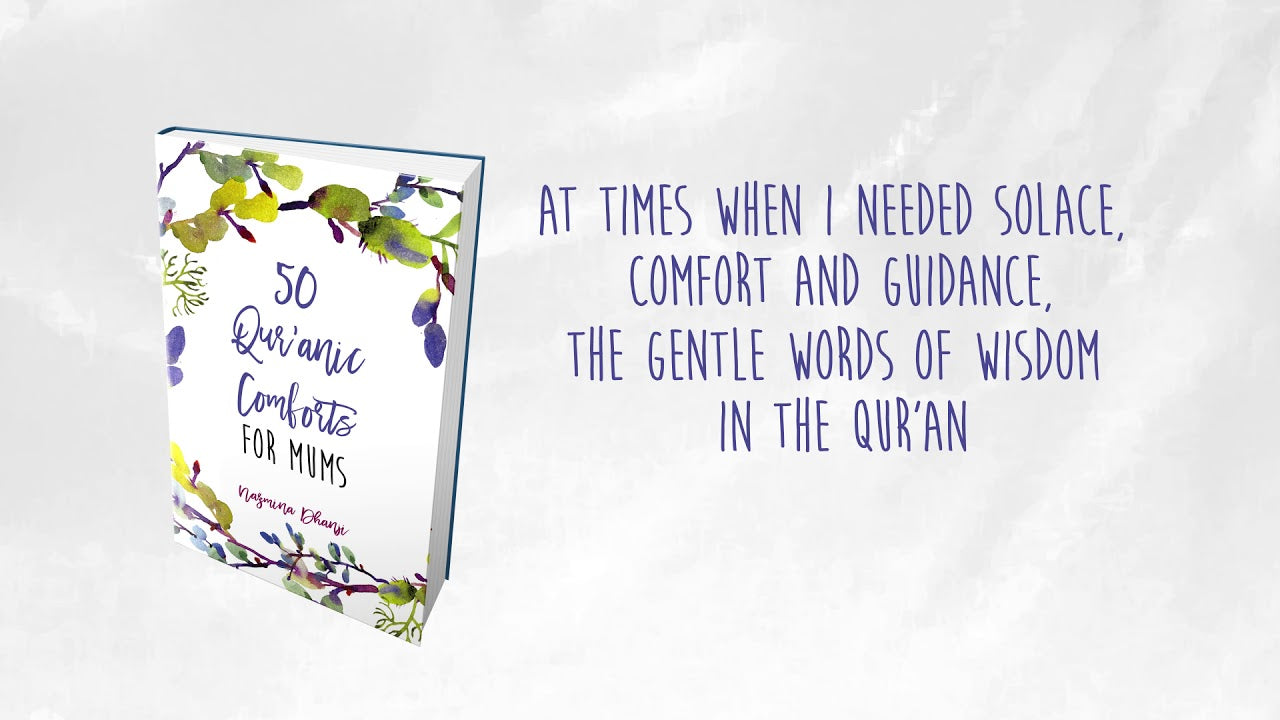 50
Qur'anic
Comforts
FOR MUMS
Nazmina Dhanji
AT TIMES WHEN I NEEDED SOLACE,
COMFORT AND GUIDANCE,
THE GENTLE WORDS OF WISDOM
IN THE QUR'AN